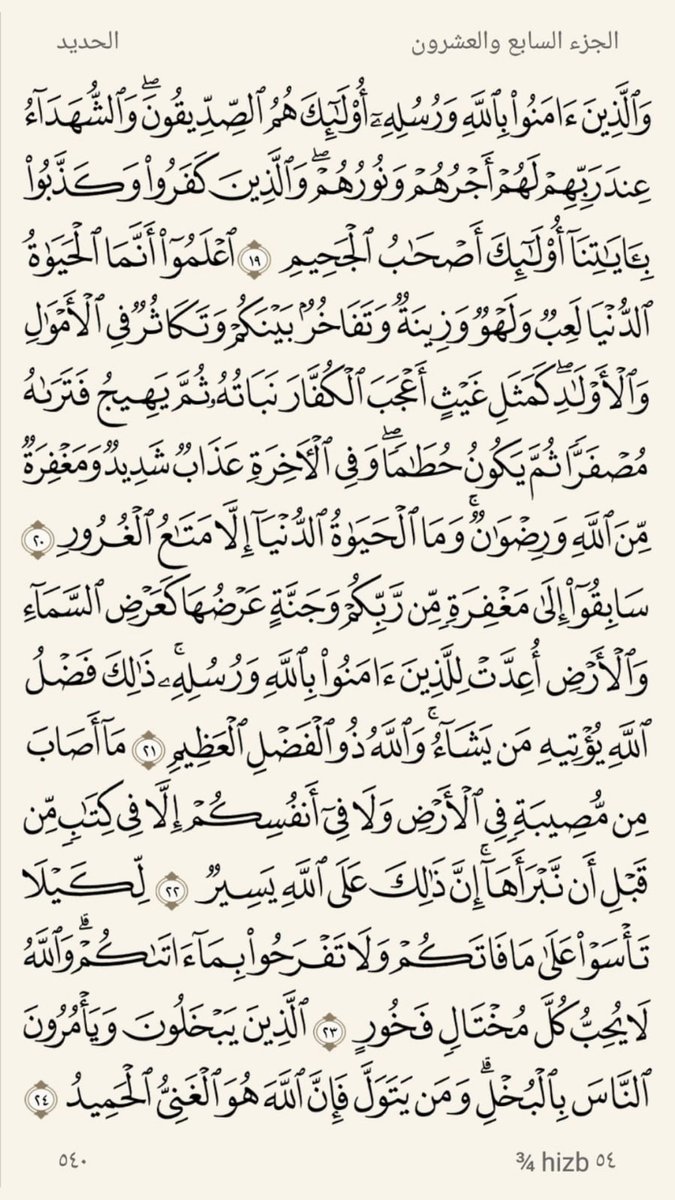 الجزء السابع والعشرون الحديد
وَٱلَّذِينَ ءَامَنُوا۟ بِٱللَّهِ وَرُسُلِهِۦٓ أُو۟لَـٰٓئِكَ هُمُ ٱلصِّدِّيقُونَۖ وَٱلشُّهَدَآءُ
عِندَ رَبِّهِمْ لَهُمْ أَجْرُهُمْ وَنُورُهُمْۖ وَٱلَّذِينَ كَفَرُوا۟ وَكَذَّبُوا۟
بِـَٔايَـٰتِنَآ أُو۟لَـٰٓئِكَ أَصْحَـٰبُ ٱلْجَحِيمِ ١٩ ٱعْلَمُوٓا۟ أَنَّمَا ٱلْحَيَوٰةُ
ٱلدُّنْيَا لَعِبٌ وَلَهْوٌ وَزِينَةٌ وَتَفَاخُرٌۢ بَيْنَكُمْ وَتَكَاثُرٌ فِى ٱلْأَمْوَٰلِ
وَٱلْأَوْلَـٰدِۖ كَمَثَلِ غَيْثٍ أَعْجَبَ ٱلْكُفَّارَ نَبَاتُهُۥ ثُمَّ يَهِيجُ فَتَرَىٰهُ
مُصْفَرًّا ثُمَّ يَكُونُ حُطَـٰمًاۖ وَفِى ٱلْـَٔاخِرَةِ عَذَابٌ شَدِيدٌ وَمَغْفِرَةٌ
مِّنَ ٱللَّهِ وَرِضْوَٰنٌۚ وَمَا ٱلْحَيَوٰةُ ٱلدُّنْيَآ إِلَّا مَتَـٰعُ ٱلْغُرُورِ ٢٠
سَابِقُوٓا۟ إِلَىٰ مَغْفِرَةٍ مِّن رَّبِّكُمْ وَجَنَّةٍ عَرْضُهَا كَعَرْضِ ٱلسَّمَآءِ
وَٱلْأَرْضِ أُعِدَّتْ لِلَّذِينَ ءَامَنُوا۟ بِٱللَّهِ وَرُسُلِهِۦۚ ذَٰلِكَ فَضْلُ
ٱللَّهِ يُؤْتِيهِ مَن يَشَآءُۚ وَٱللَّهُ ذُو ٱلْفَضْلِ ٱلْعَظِيمِ ٢١ مَآ أَصَابَ
مِن مُّصِيبَةٍ فِى ٱلْأَرْضِ وَلَا فِىٓ أَنفُسِكُمْ إِلَّا فِى كِتَـٰبٍ مِّن
قَبْلِ أَن نَّبْرَأَهَآۚ إِنَّ ذَٰلِكَ عَلَى ٱللَّهِ يَسِيرٌ ٢٢ لِّكَيْلَا
تَأْسَوْا۟ عَلَىٰ مَا فَاتَكُمْ وَلَا تَفْرَحُوا۟ بِمَآ ءَاتَىٰكُمْۗ وَٱللَّهُ
لَا يُحِبُّ كُلَّ مُخْتَالٍ فَخُورٍ ٢٣ ٱلَّذِينَ يَبْخَلُونَ وَيَأْمُرُونَ
ٱلنَّاسَ بِٱلْبُخْلِۗ وَمَن يَتَوَلَّ فَإِنَّ ٱللَّهَ هُوَ ٱلْغَنِىُّ ٱلْحَمِيدُ ٢٤
¾ hizb ٥٤ ٥٤٠